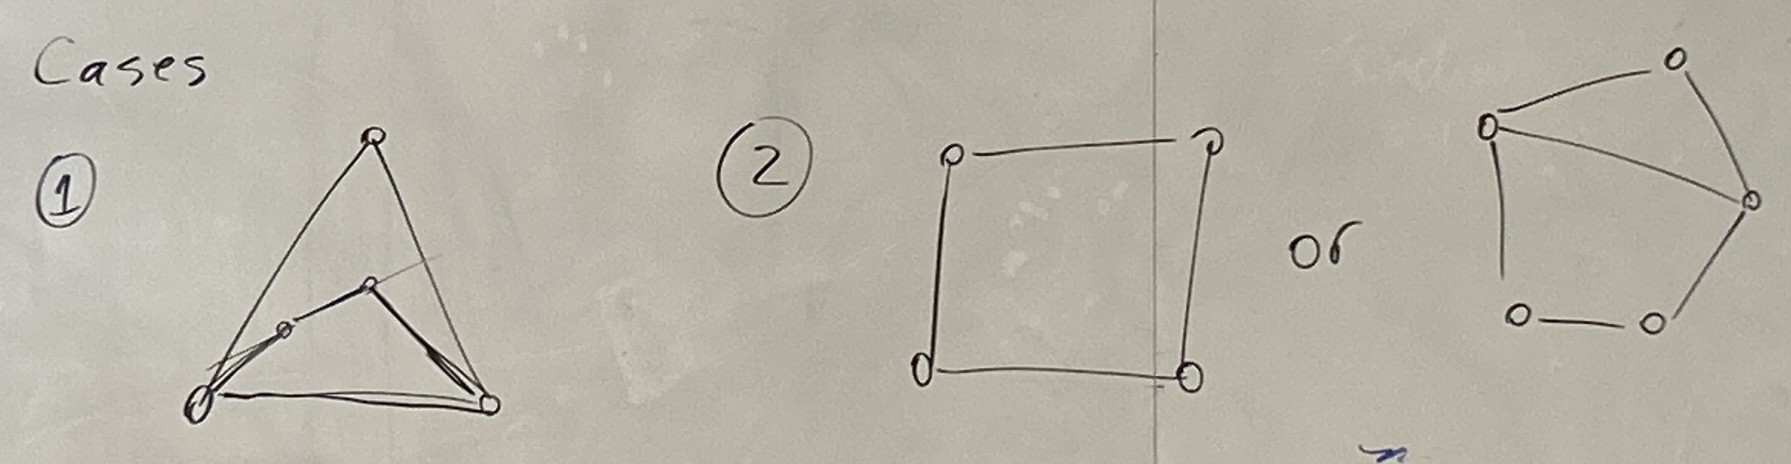 Cases
① ②
or